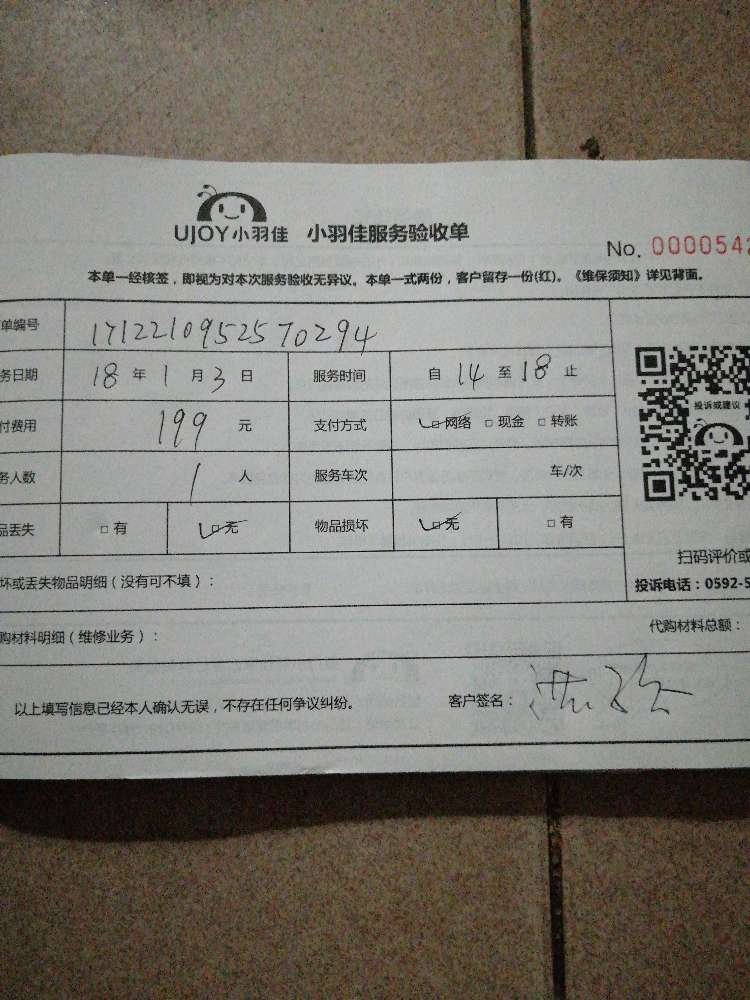 UJOY小羽佳 小羽佳服务验收单
No. 0000542
本单一经核签，即视为对本次服务验收无异议。本单一式两份，客户留存一份(红)。《维保须知》详见背面。
单编号 1712210952570294
务日期 18 年 1 月 3 日 服务时间 自 14 至 18 止
付费用 199 元 支付方式 网络 现金 转账
投诉或建议
务人数 1 人 服务车次 车/次
品丢失 有 无 物品损坏 无 有
扫码评价或
坏或丢失物品明细（没有可不填）：
投诉电话：0592-5
购材料明细（维修业务）：
代购材料总额：
以上填写信息已经本人确认无误，不存在任何争议纠纷。 客户签名：